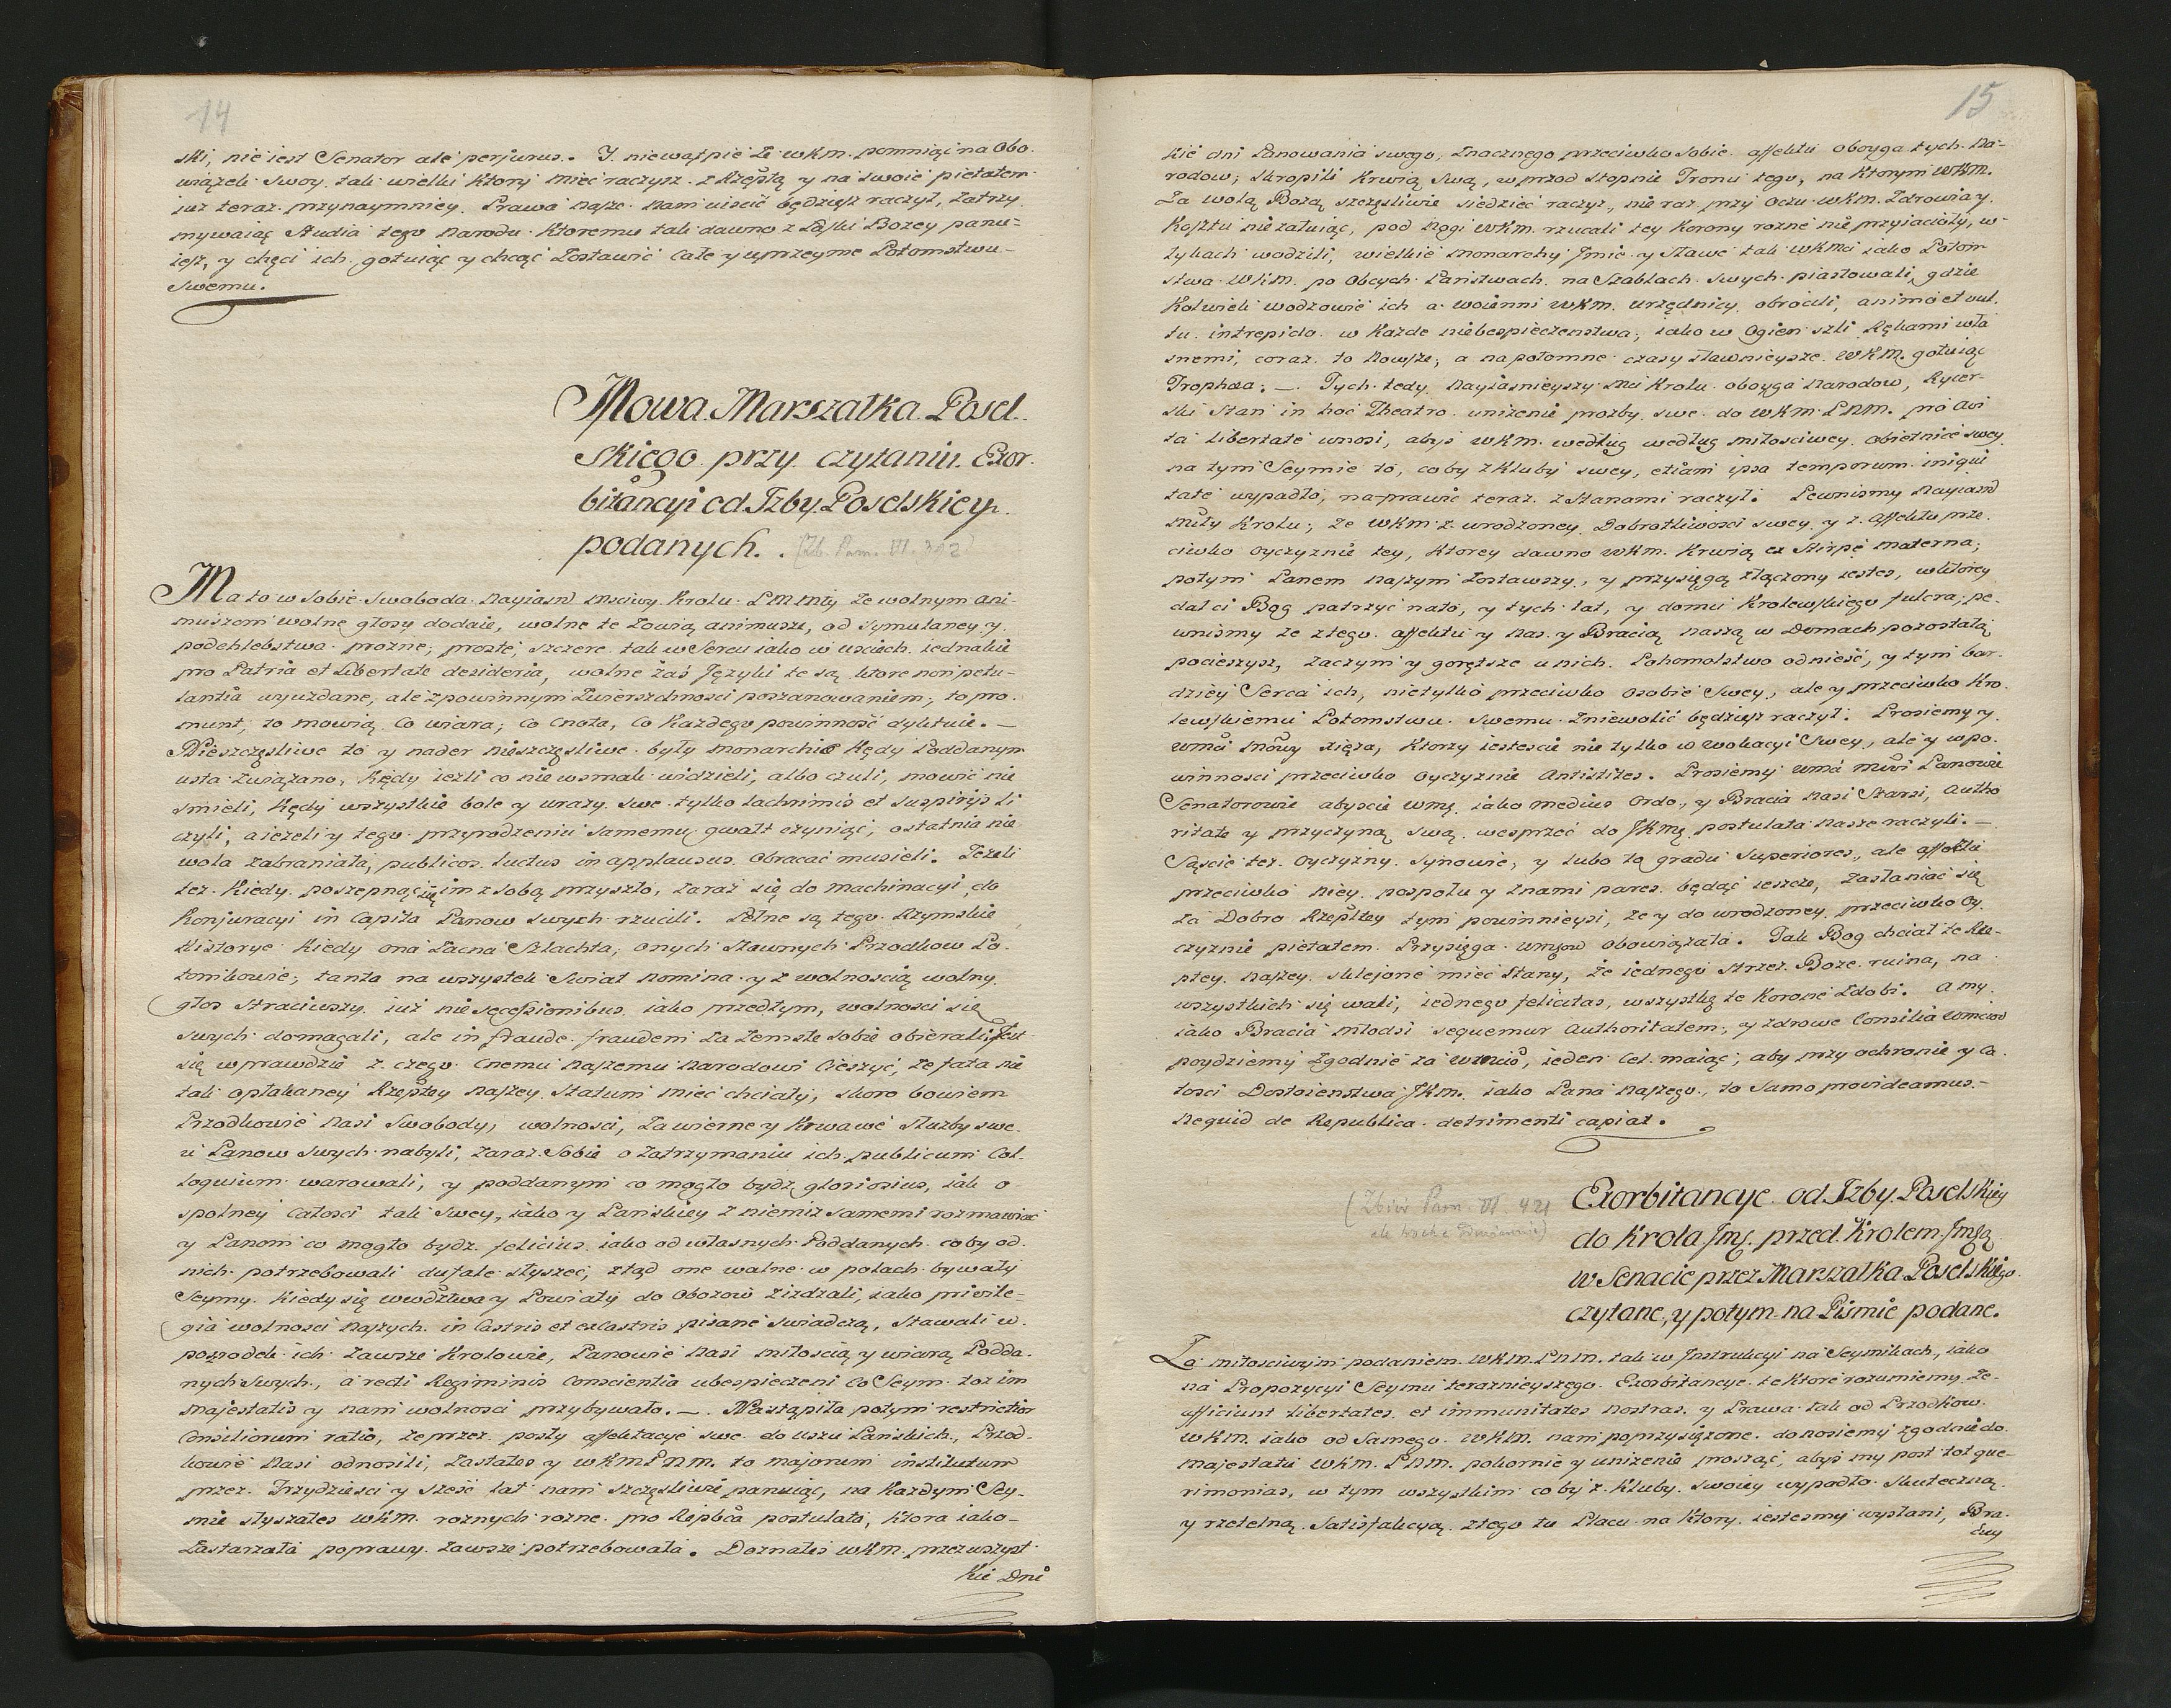 14
ski, nie iest Senator ale perjurus. J. niewątpię że wkm. pomniąc na Obo-
wiązek swoy tak wielki ktory mieć raczysz z Rzeptą y na swoie pietatem
iuż teraz przynaymniey. Prawa nasze nam uiścić będziesz raczył, zatrzy
mywaiąc Studia tego Narodu ktoremu tak dawno z Łaski Bozey panu-
iesz, y chęci ich gotuiąc y chcąc zostawić całe y uprzeyme Potomstwu
Swemu.
Mowa Marszałka Posel-
skiego przy czytaniu Exor-
bitancyi od Izby Poselskiey
podanych. (Zb. Pam. VI. 392)
Ma to w sobie Swoboda Nayiasń Msciwy Krolu P.M Mły że wolnym ani-
muszom wolne głosy dodaie, wolne te zowią animusze, od symulaney y
podchlebstwa prożne; proste, szczere tak w Sercu iako w uściech iednakie
pro Patria et Libertate desideria, wolne zaś Języki te są ktore non petu-
lantia wyuzdane, ale z powinnym Zwierzchnosci poszanowaniem, to pro-
munt, to mowią Co wiara, co Cnota, Co każdego powinność dyktuie. —
Nieszczęsliwe to y nader nieszczęsliwe były monarchie kędy Poddanym
usta związano, kędy iezli co niewsmak widzieli, albo czuli, mowić nie
śmieli, kędy wszystkie bole y urazy swe tylko lachrimis et suspirijs li
czyli, a ieżeli y tego przyrodzeniu samemu gwałt czyniąc, ostatnia nie
wola zabraniała, publicos luctus in applausus obracać musieli. Jeżeli
też kiedy poszepnąć się im z sobą przyszło, zaraz się do machinacyi, do
Konjuracyi in Capita Panow swych rzucili. Pełne są tego Rzymskie
Historye kiedy ona Zacna Szlachta, onych Sławnych Przodkow Po-
tomkowie, tanta na wszystek Swiat Nomina y z wolnością wolny
głos straciwszy iuż nie secessionibus iako przedtym, wolności się
swych domagali, ale in fraude fraudem za Zemste sobie obierali. Jest
się wprawdzie z czego Cnemu Naszemu Narodowi Cieszyć, że fata nie
tak opłakaney Rzeptey Naszey Statum mieć chciały, skoro bowiem
Przodkowie Nasi Swobody, wolności, za wierne y krwawe służby swe
u Panow swych nabyli, zaraz Sobie o zatrzymaniu ich publicum Col-
loquium warowali, y poddanym co mogło bydz gloriosius, iak o
spolney Całości tak swey, iako y Pańskiey z niemiż samemi rozmawiać
y Panom co mogło bydz felicius iako od własnych Poddanych coby od
nich potrzebowali dufale słyszeć, ztąd one walne w polach bywały
Seymy kiedy się wwdztwa y Powiaty do Obozow ziżdzali, iako privile-
gia wolności Naszych in Castris et ex Castris pisane świadczą, Stawali w
pośrodek ich zawsze Krolowie, Panowie Nasi miłością y wiarą Podda-
nych Swych, a recti Regiminis Conscientia ubespieczeni Co Seym toż im
Majestatis y nam wolności przybywało. — Nastąpiła potym restrictior
Consiliorum ratio, że przez posły affektacye swe do uszu Pańskich, Przod-
kowie Nasi odnosili, Zastałes y wkm Pnm. to majorum institutum
przez Trzydzieści y sześć lat nam szczęśliwie panuiąc, na każdym Sey-
mie słyszałes wkm. rożnych rożne pro Repbca postulata, ktora iako
Zastarzała poprawy zawsze potrzebowała. Doznałes wkm. przez wszyst
kie Dni
15
kie dni Panowania swego, znacznego przeciwko sobie affektu oboyga tych Na-
rodow; skropili krwią swą, w przod stopnie Tronu tego, na ktorym wkm.
Za wolą Bożą szczęśliwie siedzieć raczysz, nie raz przy Oczu wkm. Zdrowia y
Kosztu nieżałuiąc, pod Nogi wkm. rzucali tey Korony rożne nieprzyiacioły, w
łykach wodzili, wielkie Monarchy Jmie y Sławe tak wkmci iako Potom
stwa wkm. po Obcych Państwach na Szablach swych piastowali, gdzie
kolwiek wodzowie ich a woienni wkm. urzędnicy obrocili, animo et vul-
tu intrepido w każde niebespieczenstwa, iako w Ogien szli Rękami wła
snemi, coraz to Nowsze, a na potomne czasy sławnieysze wkm. gotuiąc
Trophæa. — Tych tedy Nayiasnieyszy Mci Krolu oboyga Narodow, Rycer-
ski Stan in hoc Theatro uniżenie prozby swe do wkm. Pnm. pro Avi
ta Libertate wnosi, abyś wkm. według według miłościwey obietnice swey
na tym Seymie to, co by z kluby swey, etiam ipsa temporum iniqui
tate wypadło, naprawić teraz z Stanami raczył. Pewniśmy Nayiasń
Miły Krolu, że wkm. z wrodzoney Dobrotliwości swey y z Affektu prze
ciwko oyczyznie tey, ktorey dawno wkm. krwią ex Stirpe materna,
potym Panem naszym zostawszy, y przysięgą złączony iestes, w ktorey
dał ci Bog patrzyć na to, y tych lat, y domu Krolewskiego fulcra, pe-
wniśmy że z tego affektu y Nas y Bracią naszą w Domach pozostałą
pocieszysz, zaczym y gorętsze u nich Pohomolstwo odnieść, y tym bar-
dziey Serca ich, nietylko przeciwko osobie Swey, ale y przeciwko Kro-
lewskiemu Potomstwu Swemu zniewolić będziesz raczył. Prosiemy y
wmci Mowy xięża, ktorzy iestescie nie tylko w wokacyi Swey, ale y w po-
winności przeciwko oyczyznie Antistites. Prosiemy wmci Mwi Panowie
Senatorowie abyscie wmę iako medius Ordo, y Bracia Nasi Starsi, Autho
ritate y przyczyną swą wesprzeć do Jkmę postulata Nasze raczyli. —
Sąście też oyczyzny Synowie, y lubo to gradu Superiores, ale affektu
przeciwko niey pospołu y z nami pares będąc ieszcze, zastaniać się
za Dobro Rzeptey tym powinnieysi, że y do wrodzoney przeciwko oy
czyznie pietatem Przysięga wmsow obowiązała. Tak Bog chciał te Rze-
ptey naszey sklejone mieć Stany, że iednego strzeż Boże ruina, na
wszystkich się wali, iednego felicitas, wszystkę te Koronę zdobi. A my
iako Bracia młodsi sequemur Authoritatem, y zdrowe Consilia
poydziemy zgodnie za wmciów, ieden Cel maiąc, aby przy ochronie y Ca-
łości Dostoienstwa Jkm. iako Pana Naszego, to Samo provideamus
Nequid de Republica detrimenti capiat.
(Zbiór Pam. VI. 421
Exorbitancye od Izby Poselskiey
do Krola Jmę. przed Krolem Jmśą
w Senacie przez Marszałka Poselskiego
czytane, y potym na Piśmie podane.
Za miłościwym podaniem wkm. Pnm. tak w Instrukcyi na Seymikach, iako
na Propozycyi Seymu teraznieyszego Exorbitancye te ktore rozumiemy że
afficiunt libertates et immunitates nostras y Prawa tak od Przodkow
wkm. iako od Samego wkm. nam poprzysiężone donosiemy zgodnie do
Majestatu wkm. Pnm. pokornie y uniżenie prosząc, abyś my post tot que-
rimonias, w tym wszystkim co by z Kluby swoiey wypadło Skuteczną
y rzetelną Satisfakcyą z tego tu Placu na ktory iestesmy wysłani, Bra-